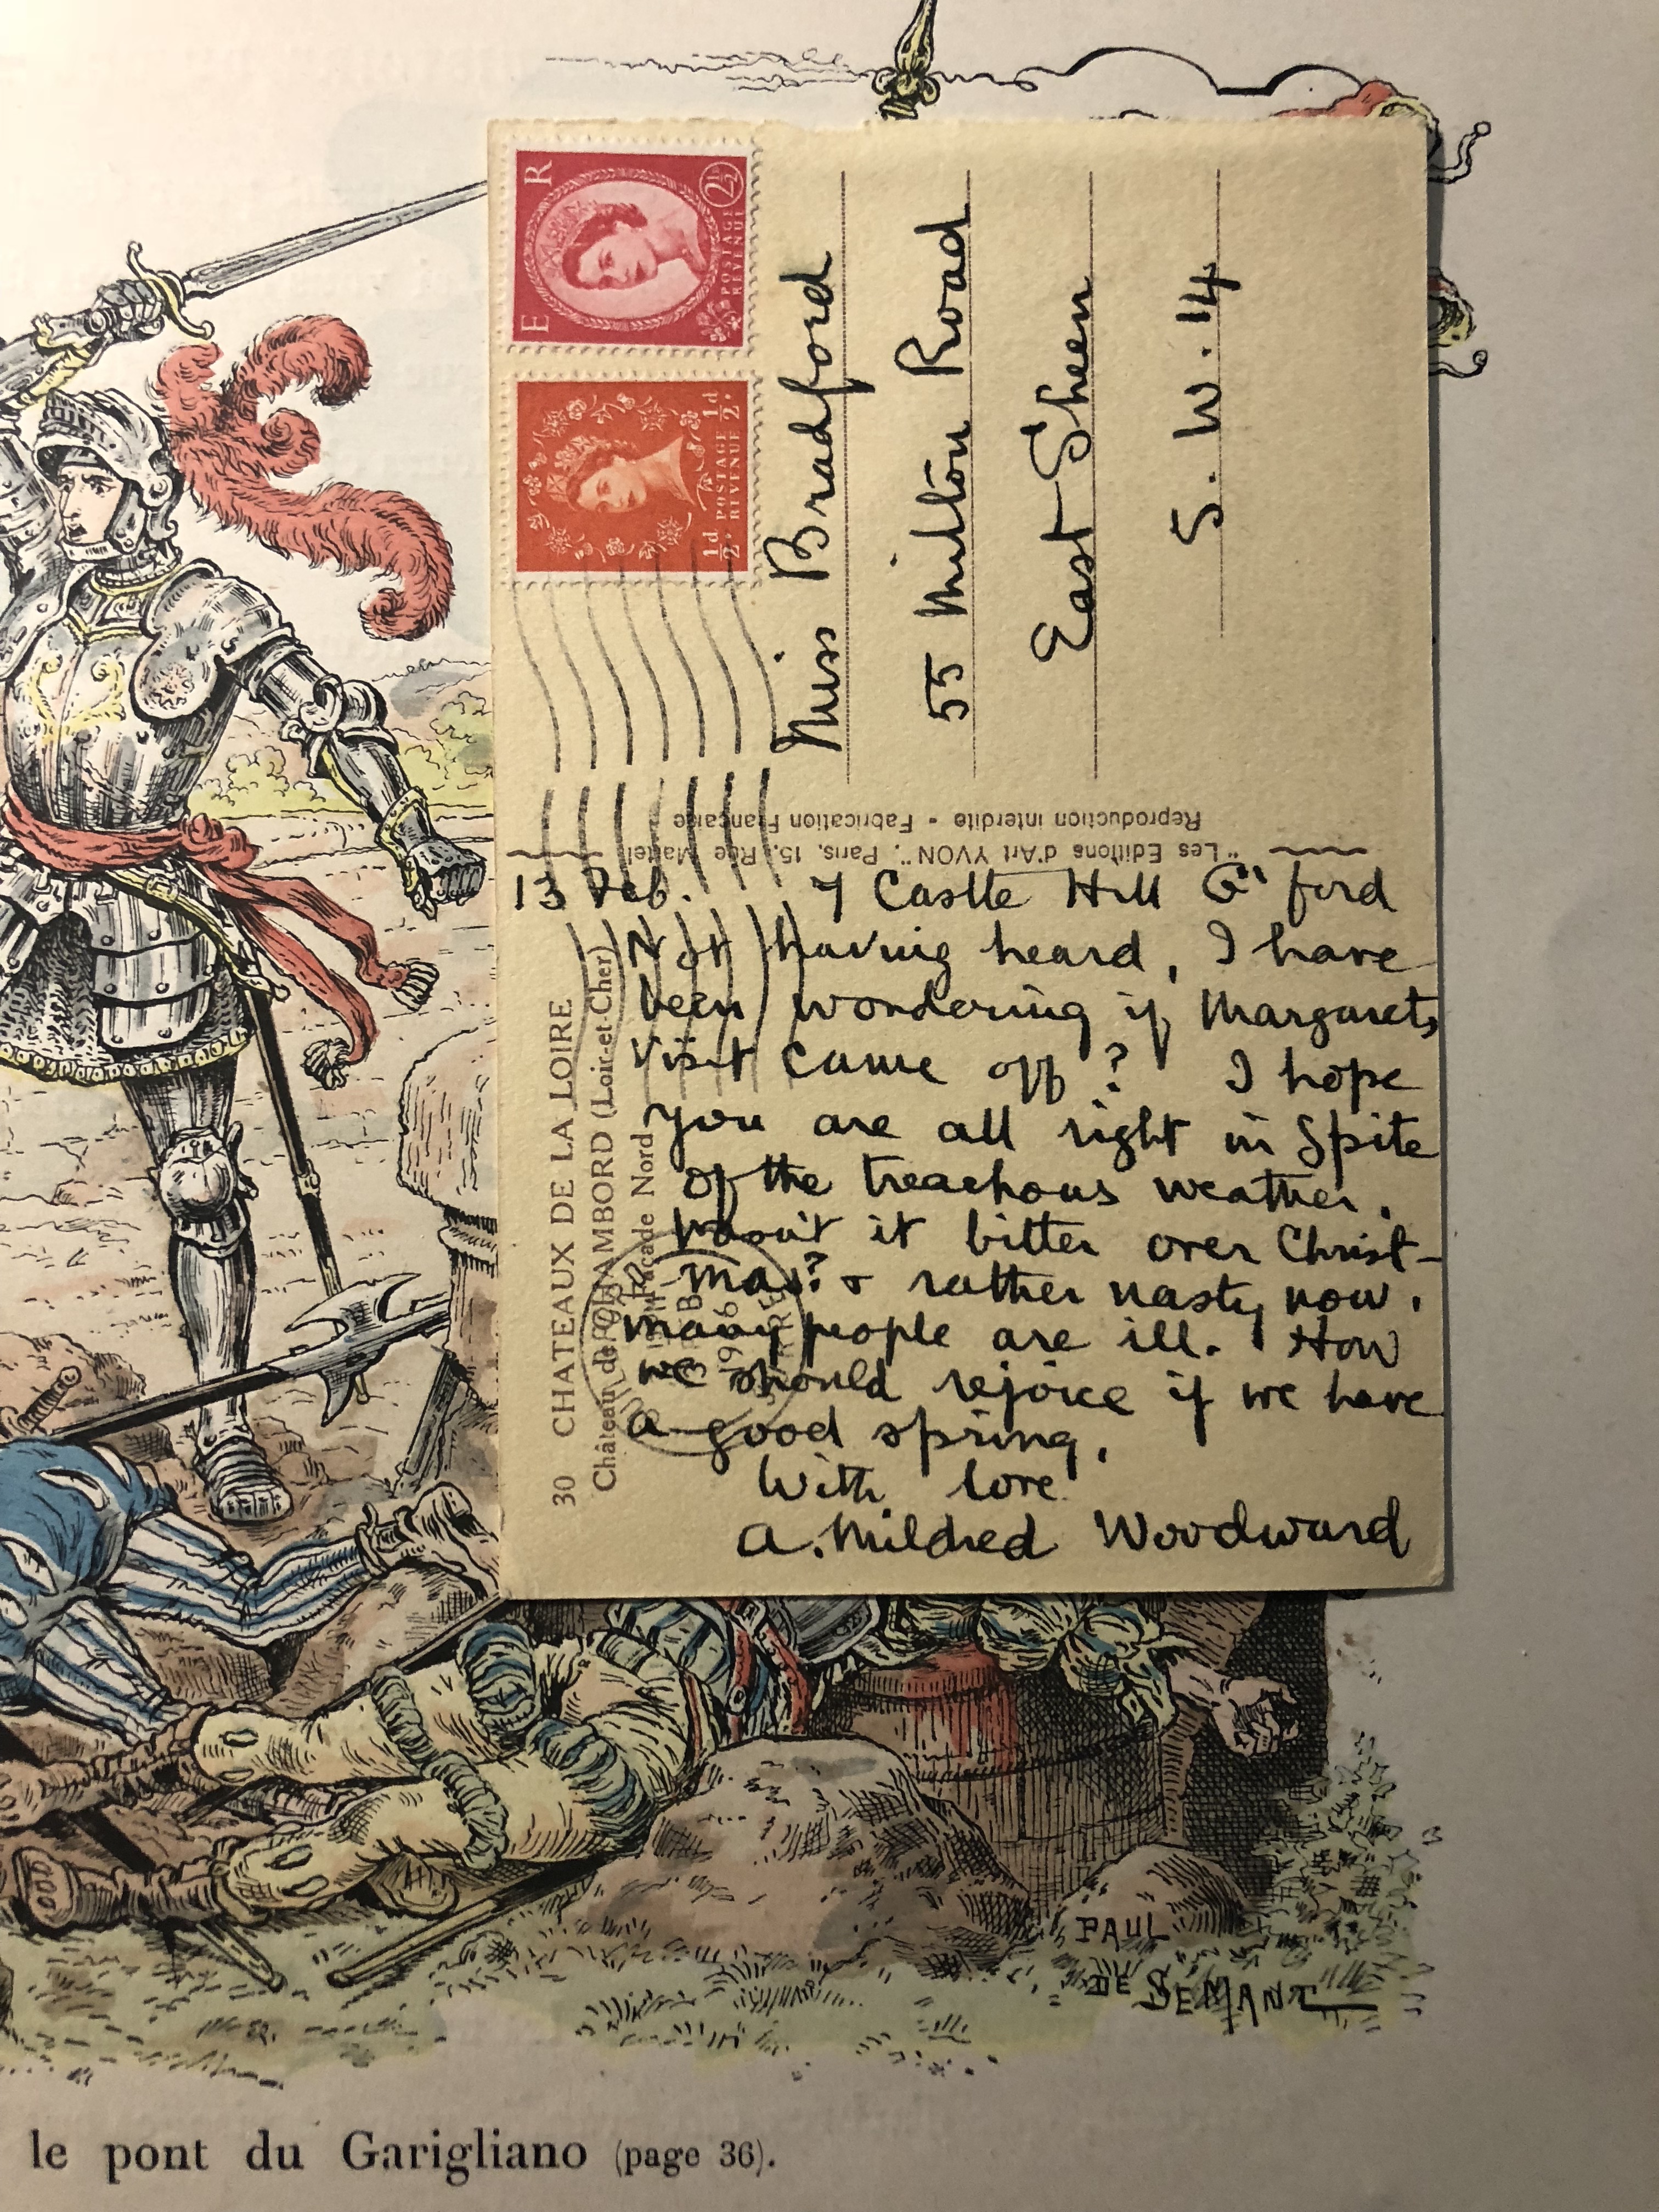 E R
2½
POSTAGE
REVENUE
½d ½d
POSTAGE
REVENUE
Miss Bradford
55 Milton Road
East Sheen
S. W. 14
"Les Editions d'Art YVON", Paris, 15, Rue Martel
Reproduction interdite - Fabrication Française
30 CHATEAUX DE LA LOIRE
Château de CHAMBORD (Loir-et-Cher)
Façade Nord
13 Feb. 7 Castle Hill G'ford
Not having heard, I have
been wondering if Margarets
visit came off? I hope
you are all right in spite
of the treachous weather.
Wasn't it bitter over Christ-
mas? & rather nasty now.
many people are ill. How
we should rejoice if we have
a good spring.
With love
A. Mildred Woodward
PAUL
DE SEMANT
le pont du Garigliano (page 36).